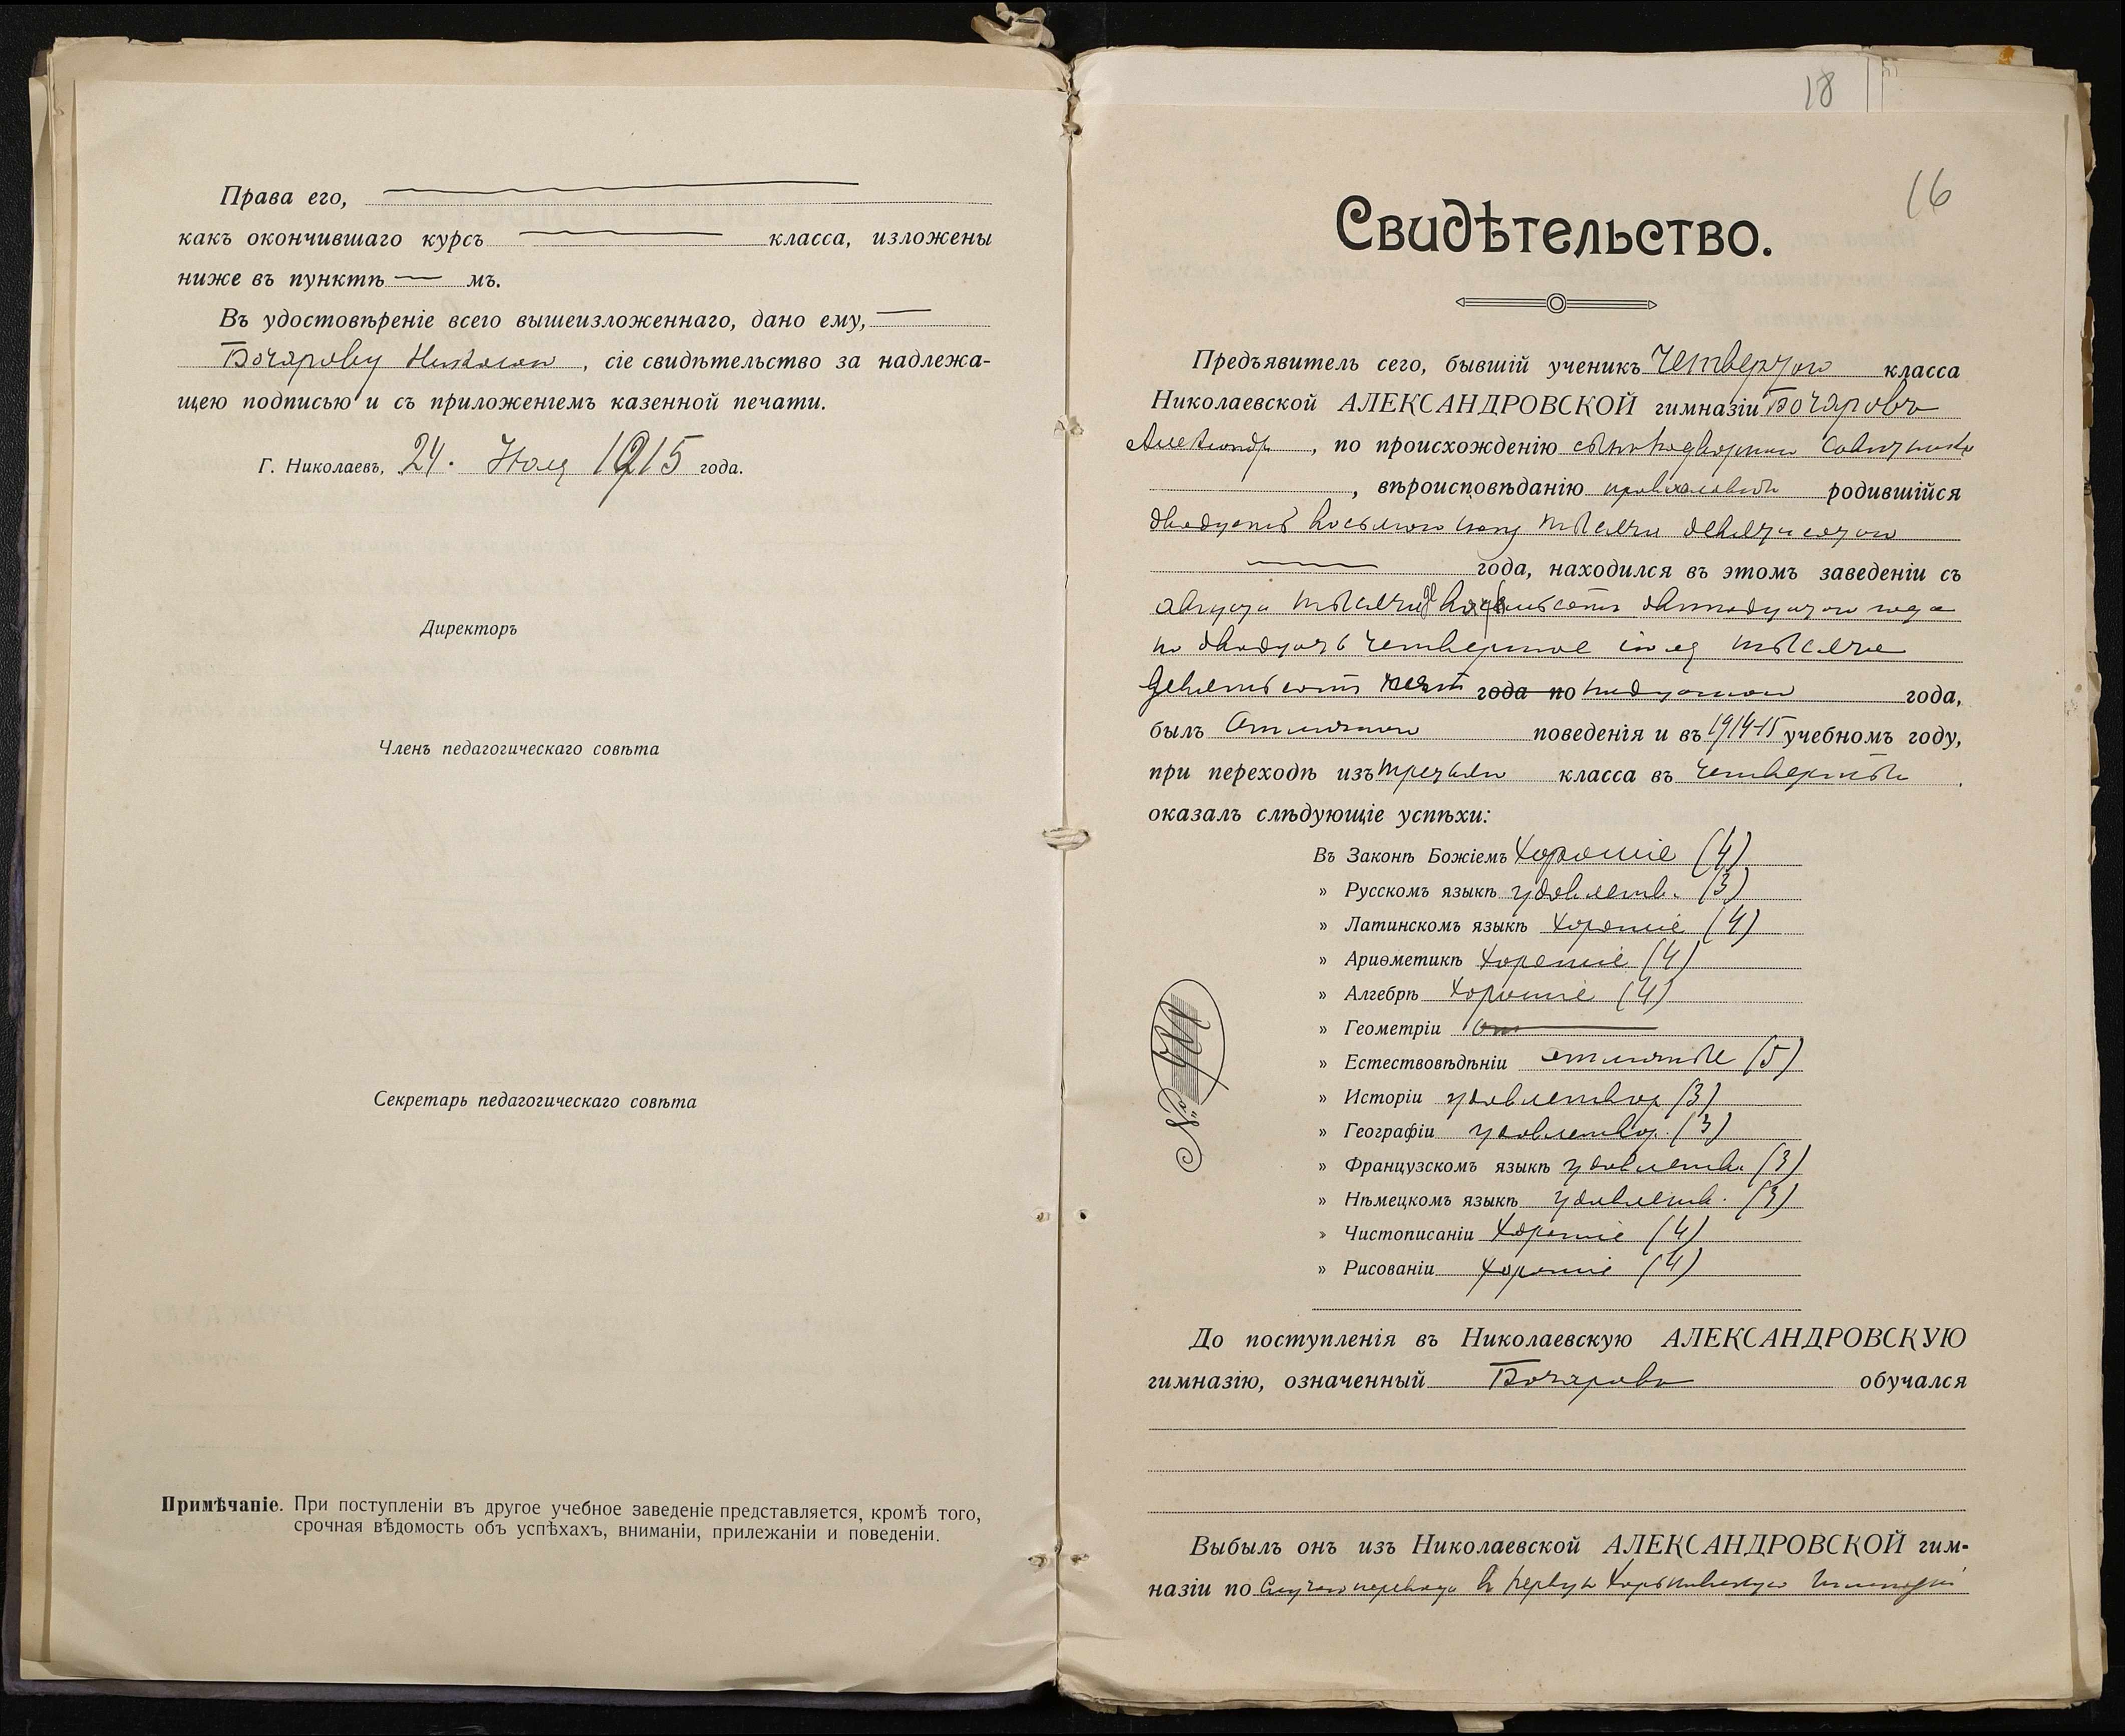 Права его,
какъ окончившаго курсъ класса, изложены
ниже въ пунктѣ — мъ.
Въ удостовѣреніе всего вышеизложеннаго, дано ему, —
Бочарову Николаю, сіе свидѣтельство за надлежа-
щею подписью и съ приложеніемъ казенной печати.
Г. Николаевъ, 24. Іюля 1915 года.
Директоръ
Членъ педагогическаго совѣта
Секретарь педагогическаго совѣта
Примѣчаніе. При поступленіи въ другое учебное заведеніе представляется, кромѣ того,
срочная вѣдомость объ успѣхахъ, вниманіи, прилежаніи и поведеніи.
18
16
Свидѣтельство.
Предъявитель сего, бывшій ученикъ Четвертаго класса
Николаевской АЛЕКСАНДРОВСКОЙ гимназіи Бочаровъ
Александръ, по происхожденію сынъ надворнаго Совѣтника
, вѣроисповѣданію православн родившійся
двадцать восьмого тысяча девятисотаго
года, находился въ этомъ заведеніи съ
августа тысяча двѣнадцатаго года
по двадцать четвертое іюля тысяча
девятьсотъ года по надцатаго года,
былъ Отличнаго поведенія и въ 1914-15 учебномъ году,
при переходѣ изъ третьяго класса въ четвертый.
оказалъ слѣдующіе успѣхи:
Въ Законѣ Божіемъ хорошіе (4)
» Русскомъ языкѣ удовлетв. (3)
» Латинскомъ языкѣ хорошіе (4)
» Ариѳметикѣ хорошіе (4)
» Алгебрѣ хорошіе (4)
» Геометріи От
» Естествовѣдѣніи отличные (5)
» Исторіи удовлетвор (3)
» Географіи удовлетвор. (3)
» Французскомъ языкѣ удовлетв. (3)
» Нѣмецкомъ языкѣ удовлетв. (3)
» Чистописаніи хорошіе (4)
» Рисованіи хорошіе (4)
№
До поступленія въ Николаевскую АЛЕКСАНДРОВСКУЮ
гимназію, означенный Бочаровъ обучался
Выбылъ онъ изъ Николаевской АЛЕКСАНДРОВСКОЙ гим-
назіи по случаю перевода въ первую Харьковскую гимназію